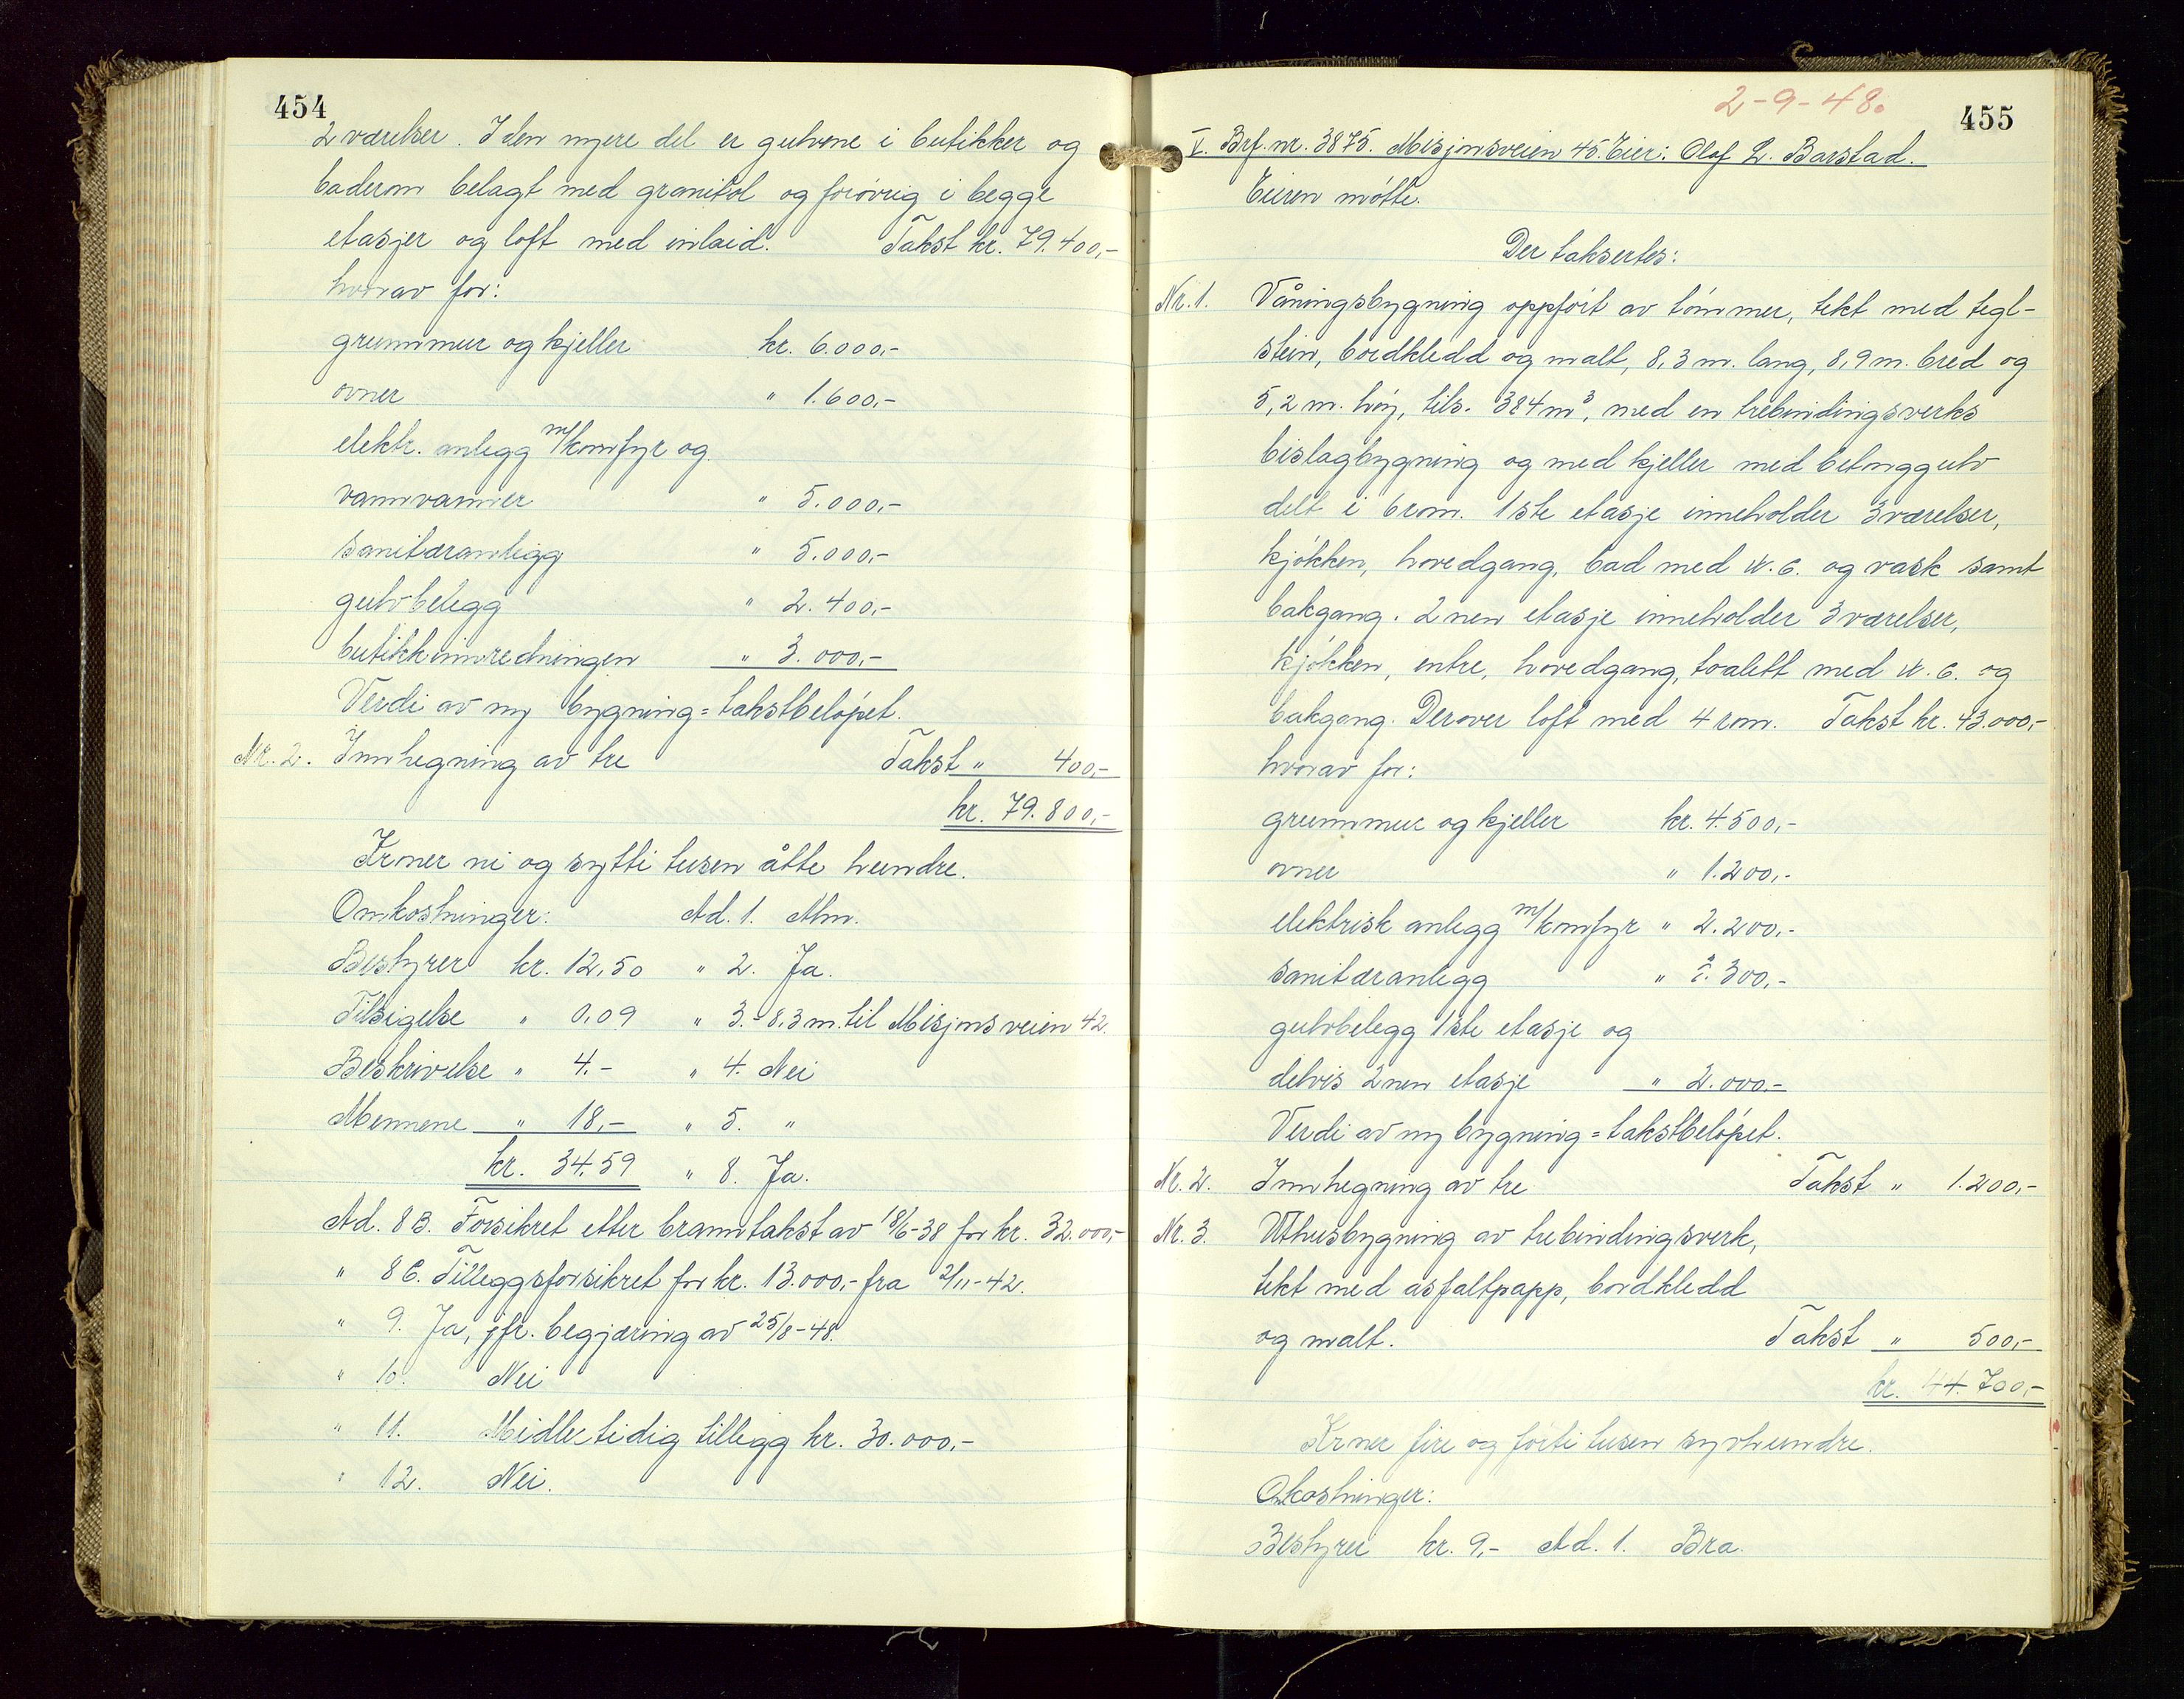 454
2 værelser. I den nyere del er gulvene i butikker og
baderom belagt med granitol og forøvrig i begge
etasjer og loft med inlaid. Takst kr. 79.400,-
hvorav for:
grunnmur og kjeller kr. 6.000,-
ovner " 1.600,-
elektr. anlegg m/komfyr og
vannvarmer " 5.000,-
sanitæranlegg " 5.000,-
gulvbelegg " 2.400,-
butikkinnredningen " 3.000,-
Verdi av ny bygning = takstbeløpet.
Nr. 2. Innhegning av tre Takst " 400,-
kr. 79.800,-
Kroner ni og sytti tusen åtte hundre.
Omkostninger: Ad. 1. Alm.
Bestyrer kr. 12,50 " 2. Ja.
Tilsigelse " 0,09 " 3. - 8,3 m. til Misjonsveien 42.
Beskrivelse " 4,- " 4. Nei
Mennene " 18,- " 5. "
kr. 34.59 " 8. Ja.
Ad. 8 B. Forsikret etter branntakst av 18/6-38 for kr. 32.000,-
" 8 C. Tilleggsforsikret for kr. 13.000,- fra 2/11-42.
" 9. Ja, jfr. begjæring av 25/8-48.
" 10. Nei
" 11. Midlertidig tillegg kr. 30.000,-
" 12. Nei.
2-9-48.
455
V. Brf. nr. 3875. Misjonsveien 45. Eier: Olof L. Barstad.
Eieren møtte.
Der taksertes:
Nr. 1. Våningsbygning oppført av tømmer, tekt med tegl-
stein, bordkledd og malt, 8,3 m. lang, 8,9 m. bred og
5,2 m. høy, tils. 384 m³, med en trebindingsverks
bislagbygning og med kjeller med betonggulv
delt i 6 rom. 1ste etasje inneholder 3 værelser,
kjøkken, hovedgang, bad med W.C. og vask samt
bakgang. 2nen etasje inneholder 3 værelser,
kjøkken, entre, hovedgang, toalett med W.C. og
bakgang. Derover loft med 4 rom. Takst kr. 43.000,-
hvorav for:
grunnmur og kjeller kr. 4.500,-
ovner " 1.200,-
elektrisk anlegg m/komfyr " 2.200,-
sanitæranlegg " 300,-
gulvbelegg 1ste etasje og
delvis 2nen etasje " 2.000,-
Verdi av ny bygning = takstbeløpet.
Nr. 2. Innhegning av tre Takst " 1.200,-
Nr. 3. Uthusbygning av trebindingsverk,
tekt med asfaltpapp, bordkledd
og malt. Takst " 500,-
kr. 44.700,-
Kroner fire og førti tusen syvhundre.
Omkostninger:
Bestyrer kr. 9,- Ad. 1. Bra.